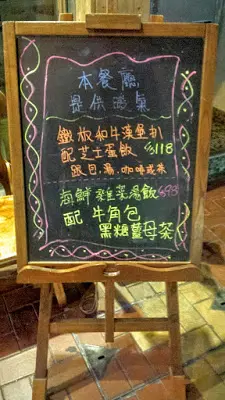 本餐廳
提供暖氣
鐵板和牛漢堡扒
配芝士蛋飯 $118
跟日湯，咖啡或茶
海鮮雜菜湯飯 $98
配 牛角包
黑糖薑母茶